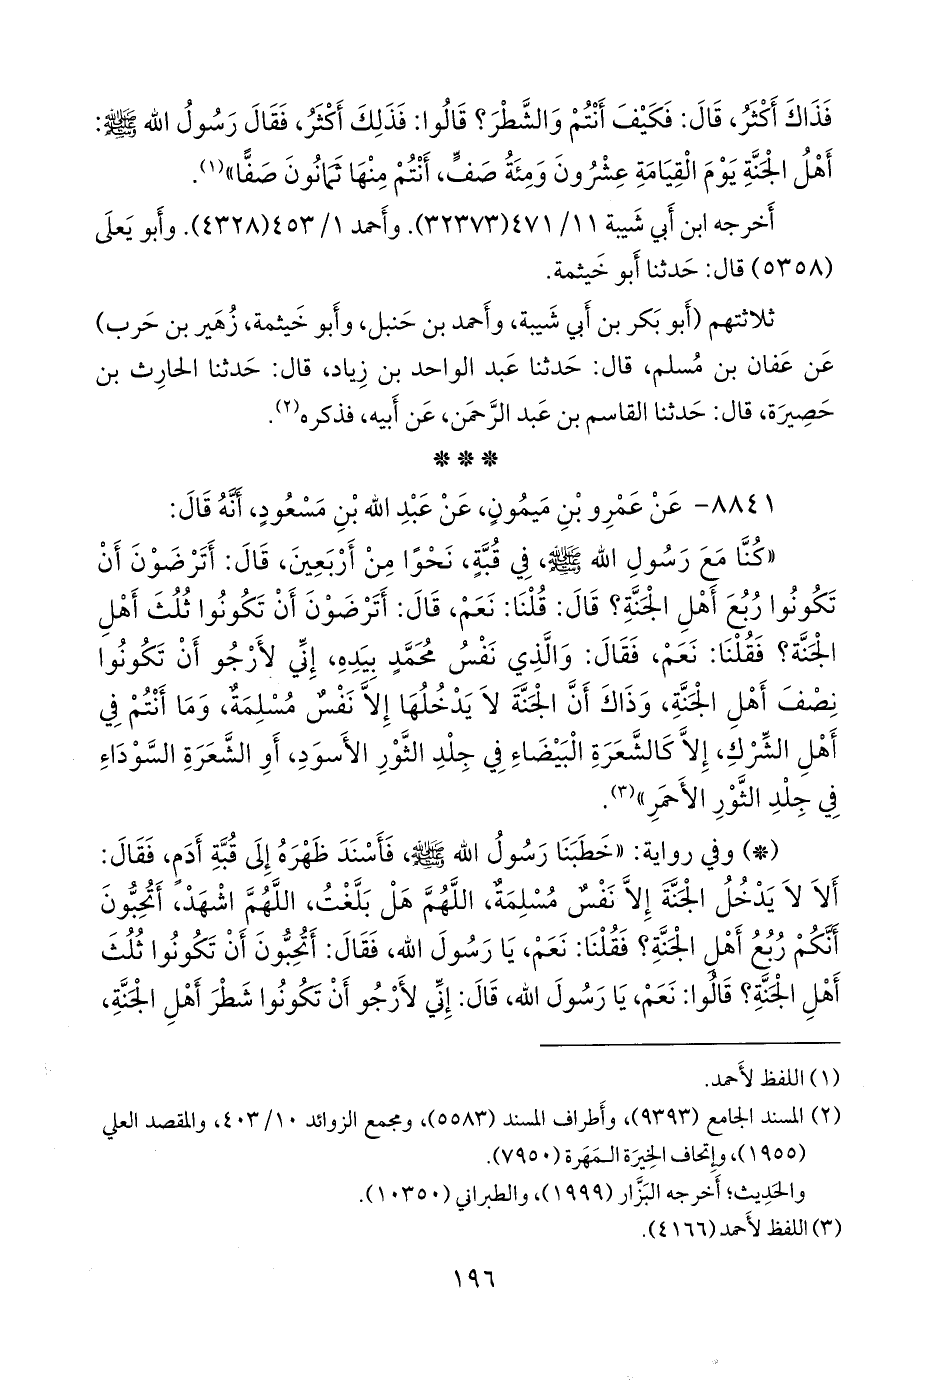 فَذَاكَ أَكْثَرُ، قَالَ: فَكَيْفَ أَنْتُمْ وَالشَّطْرَ؟ قَالُوا: فَذَلِكَ أَكْثَرُ، فَقَالَ رَسُولُ الله ﷺ:
أَهْلُ الْجَنَّةِ يَوْمَ الْقِيَامَةِ عِشْرُونَ وَمِئَةُ صَفٍّ، أَنْتُمْ مِنْهَا ثَمَانُونَ صَفًّا»(١).
أَخرجه ابن أَبي شَيبة ١١/ ٤٧١(٣٢٣٧٣). وأَحمد ١/ ٤٥٣(٤٣٢٨). وأَبو يَعلَى
(٥٣٥٨) قال: حَدثنا أَبو خَيثمة.
ثلاثتهم (أَبو بَكر بن أَبي شَيبة، وأَحمد بن حَنبل، وأَبو خَيثمة، زُهَير بن حَرب)
عَن عَفان بن مُسلم، قال: حَدثنا عَبد الواحد بن زِياد، قال: حَدثنا الحارِث بن
حَصِيرَة، قال: حَدثنا القاسم بن عَبد الرَّحمَن، عَن أَبيه، فذكره(٢).
* * *
٨٨٤١- عَنْ عَمْرِو بْنِ مَيمُونٍ، عَنْ عَبْدِ الله بْنِ مَسْعُودٍ، أَنَّهُ قَالَ:
«كُنَّا مَعَ رَسُولِ الله ﷺ، فِي قُبَّةٍ، نَحْوًا مِنْ أَرْبَعِينَ، قَالَ: أَتَرْضَوْنَ أَنْ
تَكُونُوا رُبُعَ أَهْلِ الْجَنَّةِ؟ قَالَ: قُلْنَا: نَعَمْ، قَالَ: أَتَرْضَوْنَ أَنْ تَكُونُوا ثُلُثَ أَهْلِ
الْجَنَّة؟ فَقُلْنَا: نَعَمْ، فَقَالَ: وَالَّذِي نَفْسُ مُحَمَّدٍ بِيَدِهِ، إِنِّي لأَرْجُو أَنْ تَكُونُوا
نِصْفَ أَهْلِ الْجَنَّةِ، وَذَاكَ أَنَّ الْجَنَّةَ لاَ يَدْخُلُهَا إِلاَّ نَفْسٌ مُسْلِمَةٌ، وَمَا أَنْتُمْ فِي
أَهْلِ الشِّرْكِ، إِلاَّ كَالشَّعَرَةِ الْبَيْضَاءِ فِي جِلْدِ الثَّوْرِ الأَسوَدِ، أَوِ الشَّعَرَةِ السَّوْدَاءِ
فِي جِلْدِ الثَّوْرِ الأَحمَرِ»(٣).
(*) وفي رواية: «خَطَبَنَا رَسُولُ الله ﷺ، فَأَسْنَدَ ظَهْرَهُ إِلَى قُبَّةِ أَدَمٍ، فَقَالَ:
أَلاَ لاَ يَدْخُلُ الْجَنَّةَ إِلاَّ نَفْسٌ مُسْلِمَةٌ، اللَّهُمَّ هَلْ بَلَّغْتُ، اللَّهُمَّ اشْهَدْ، أَتُحِبُّونَ
أَنَّكُمْ رُبُعُ أَهْلِ الْجَنَّةِ؟ فَقُلْنَا: نَعَمْ، يَا رَسُولَ الله، فَقَالَ: أَتُحِبُّونَ أَنْ تَكُونُوا ثُلُثَ
أَهْلِ الْجَنَّةِ؟ قَالُوا: نَعَمْ، يَا رَسُولَ الله، قَالَ: إِنِّي لأَرْجُو أَنْ تَكُونُوا شَطْرَ أَهْلِ الْجَنَّةِ،
(١) اللفظ لأَحمد.
(٢) المسند الجامع (٩٣٩٣)، وأَطراف المسند (٥٥٨٣)، ومجمع الزوائد ١٠/ ٤٠٣، والمقصد العلي
(١٩٥٥)، وإِتحاف الخِيرَة المَهَرة (٧٩٥٠).
والحَدِيث؛ أَخرجه البَزَّار (١٩٩٩)، والطبراني (١٠٣٥٠).
(٣) اللفظ لأَحمد (٤١٦٦).
١٩٦